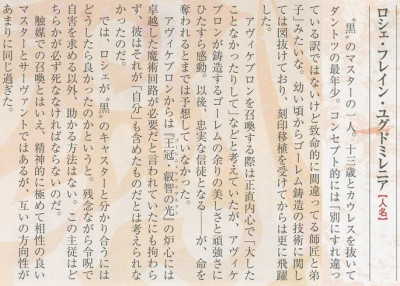 ロシェ・フレイン・ユグドミレニア【人名】
“黒”のマスターの一人。十三歳とカウレスを抜いて
ダントツの最年少。コンセプト的には『別にすれ違っ
ている訳ではないけど致命的に間違ってる師匠と弟
子』みたいな。幼い頃からゴーレム鋳造の技術に関し
ては図抜けており、刻印移植を受けてからは更に飛躍
アヴィケブロンを召喚する際は正直内心で「大した
ことなかったりして」などと考えていたが、アヴィケ
ブロンが鋳造するゴーレムの余りの美しさと頑強さに
ひたすら感動。以後、忠実な信徒となる　が、命を
奪われるとまでは予想していなかった。
アヴィケブロンからは『王冠：叡智の光』の炉心には
卓越した魔術回路が必要だと言われていたにも拘わら
ず、彼はそれが「自分」も含めたものだとは考えられな
かったのだ。
では、ロシェが“黒”のキャスターと分かり合うには
どうしたら良かったのかというと。残念ながら令呪で
自害を求める以外、助かる方法はない。この主従はど
ちらかが必ず死ななければならないのだ。
触媒での召喚とはいえ、精神的に極めて相性の良い
マスターとサーヴァントではあるが、互いの方向性が
あまりに同じ過ぎた。